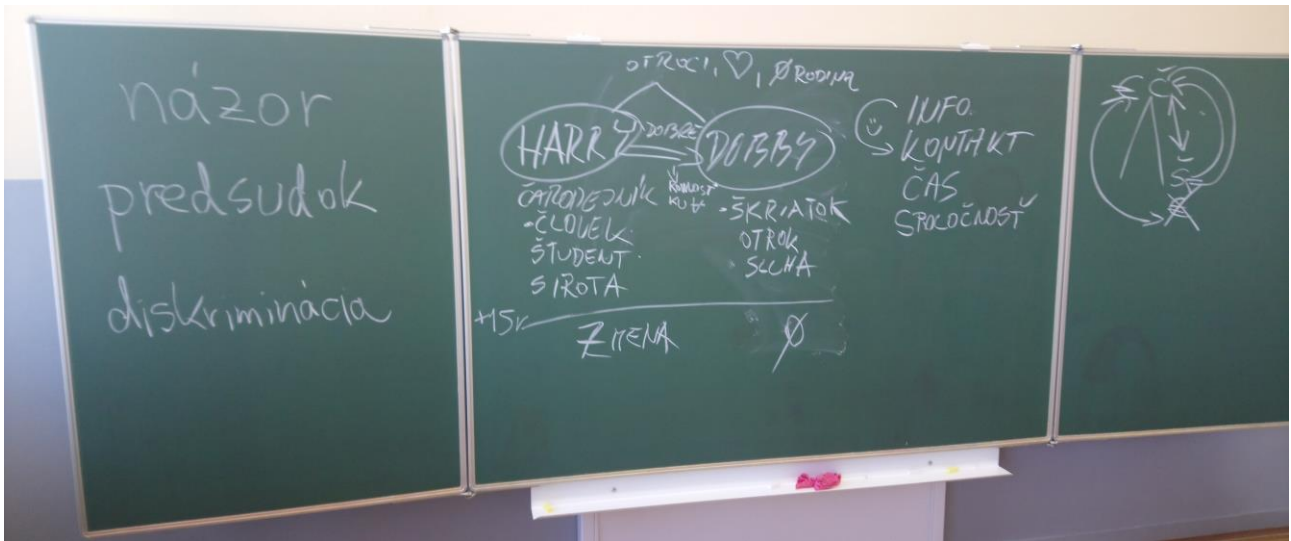 názor
predsudok
diskriminácia
OTROCI, ♡, Ø RODINA
HARRY DOBRE DOBBY
ČARODEJNÍK
•ČLOVEK
ŠTUDENT
SIROTA
•ŠKRIATOK
OTROK
SLUHA
+15r.
ZMENA Ø
INFO.
KONTAKT
ČAS
SPOLOČNOSŤ
Č
Š